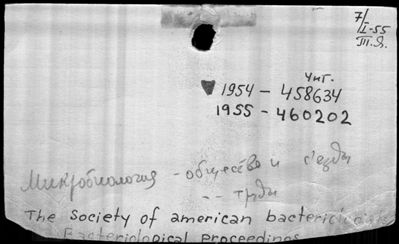 7/I-55
III.Я.
Чит.
1954 - 458634
1955 - 460202
Микробиология - общество и съезды
-- труды
The society of american bacteriologists
Bacteriological proceedings